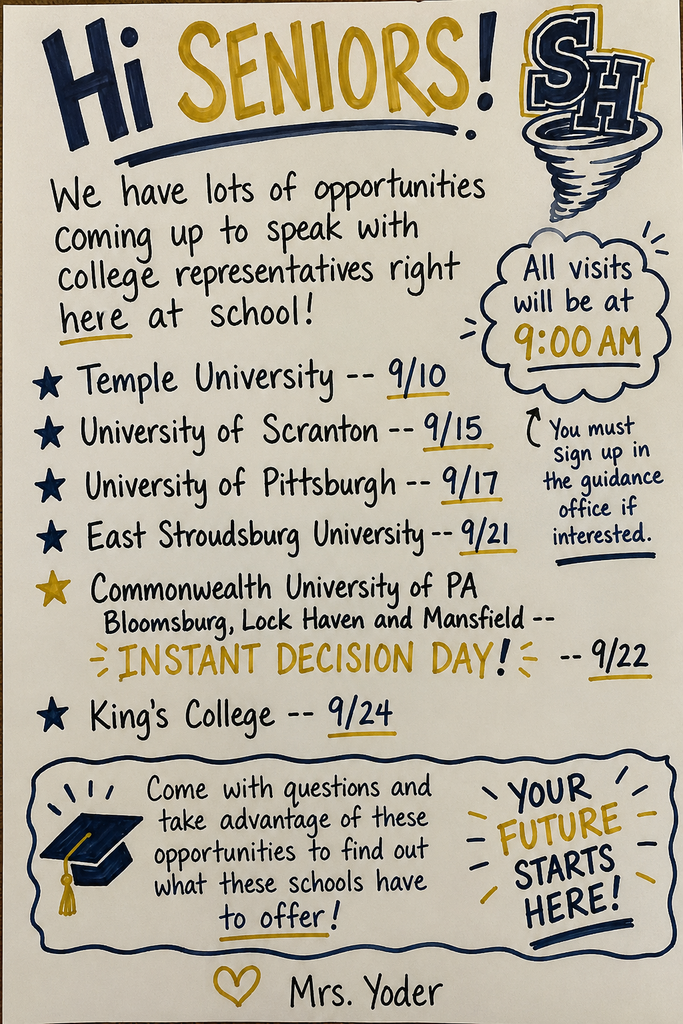 Hi SENIORS!
SH
We have lots of opportunities
coming up to speak with
college representatives right
here at school!
All visits
will be at
9:00 AM
You must
sign up in
the guidance
office if
interested.
★ Temple University -- 9/10
★ University of Scranton -- 9/15
★ University of Pittsburgh -- 9/17
★ East Stroudsburg University -- 9/21
★ Commonwealth University of PA
Bloomsburg, Lock Haven and Mansfield --
INSTANT DECISION DAY! -- 9/22
★ King's College -- 9/24
Come with questions and
take advantage of these
opportunities to find out
what these schools have
to offer!
YOUR
FUTURE
STARTS
HERE!
♡ Mrs. Yoder